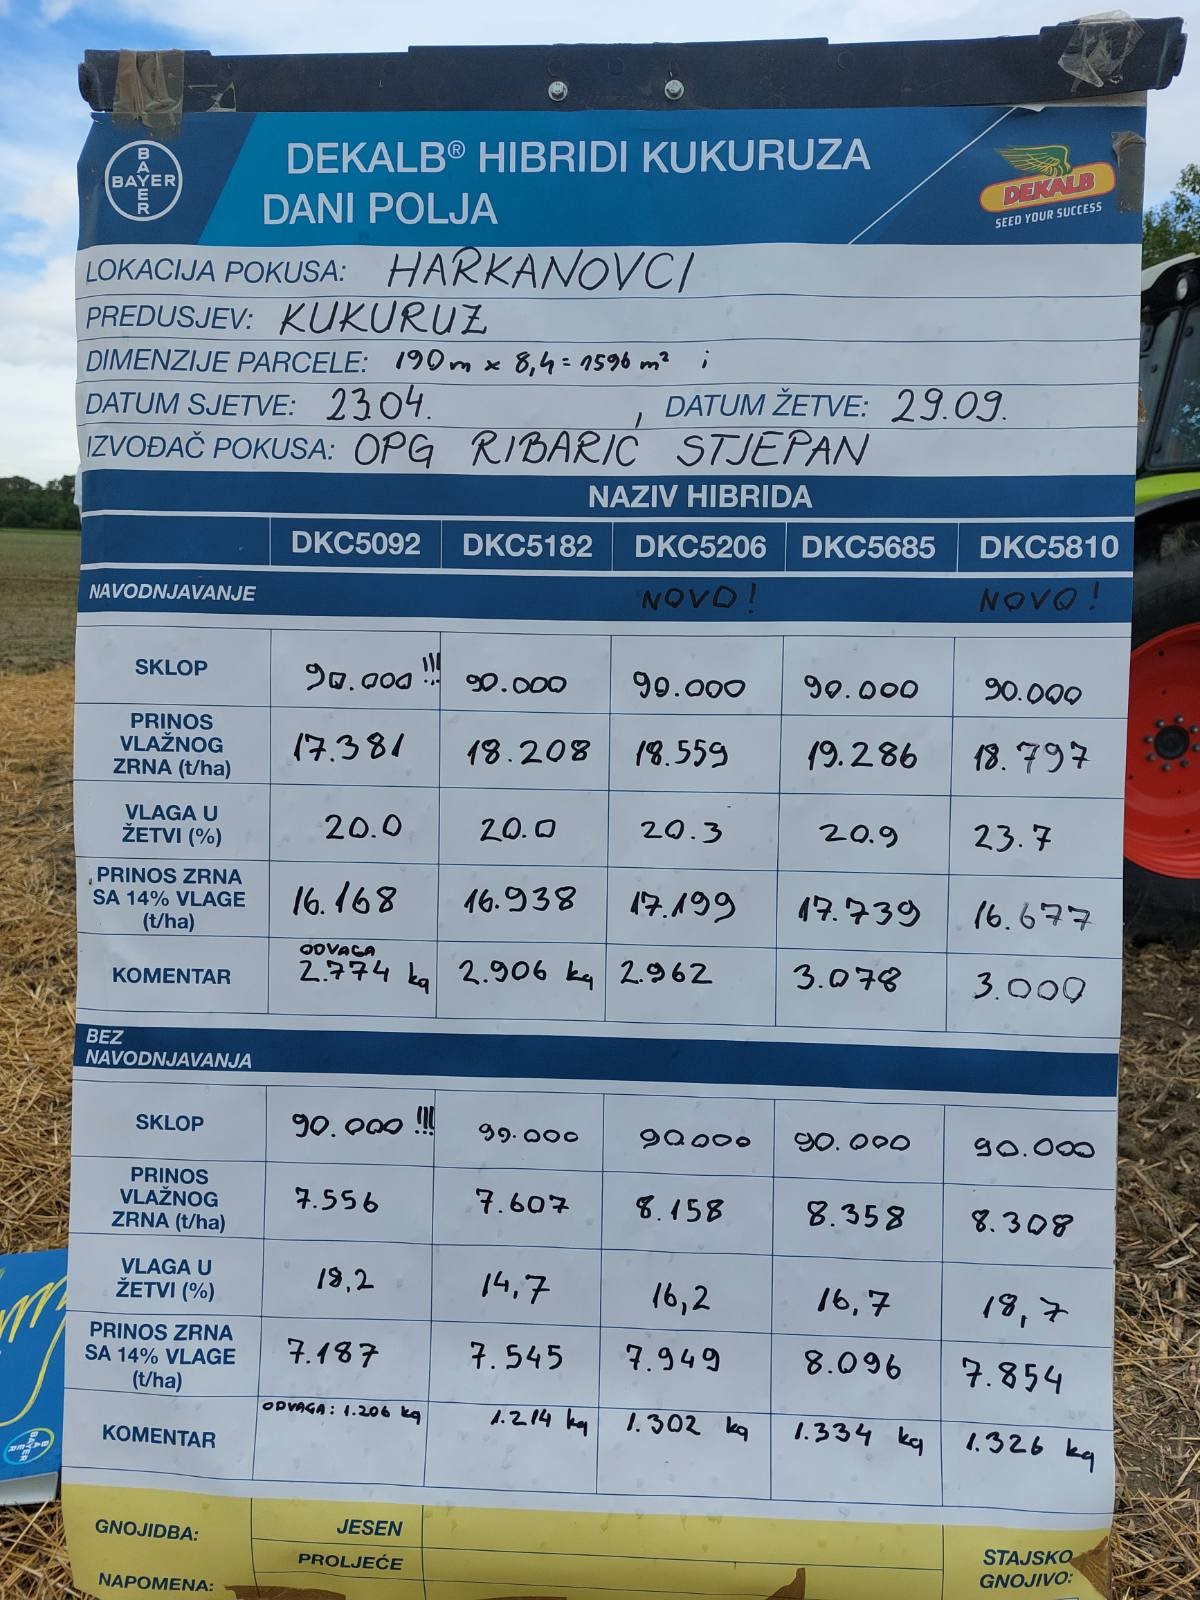 BAYER
BAYER
DEKALB® HIBRIDI KUKURUZA
DANI POLJA
DEKALB
SEED YOUR SUCCESS
LOKACIJA POKUSA: HARKANOVCI
PREDUSJEV: KUKURUZ
DIMENZIJE PARCELE: 190m x 8,4 = 1596 m² i
DATUM SJETVE: 2304. , DATUM ŽETVE: 29.09.
IZVOĐAČ POKUSA: OPG RIBARIĆ STJEPAN
NAZIV HIBRIDA
DKC5092 DKC5182 DKC5206 DKC5685 DKC5810
NAVODNJAVANJE NOVO! NOVO!
SKLOP 90.000!!! 90.000 90.000 90.000 90.000
PRINOS VLAŽNOG ZRNA (t/ha) 17.381 18.208 18.559 19.286 18.797
VLAGA U ŽETVI (%) 20.0 20.0 20.3 20.9 23.7
PRINOS ZRNA SA 14% VLAGE (t/ha) 16.168 16.938 17.199 17.739 16.677
KOMENTAR ODVAGA 2.774 kg 2.906 kg 2.962 3.078 3.000
BEZ NAVODNJAVANJA
SKLOP 90.000!!! 90.000 90.000 90.000 90.000
PRINOS VLAŽNOG ZRNA (t/ha) 7.556 7.607 8.158 8.358 8.308
VLAGA U ŽETVI (%) 18,2 14,7 16,2 16,7 18,7
PRINOS ZRNA SA 14% VLAGE (t/ha) 7.187 7.545 7.949 8.096 7.854
KOMENTAR ODVAGA: 1.206 kg 1.214 kg 1.302 kg 1.334 kg 1.326 kg
GNOJIDBA: JESEN
PROLJEĆE
STAJSKO GNOJIVO:
NAPOMENA:
BAYER
BAYER